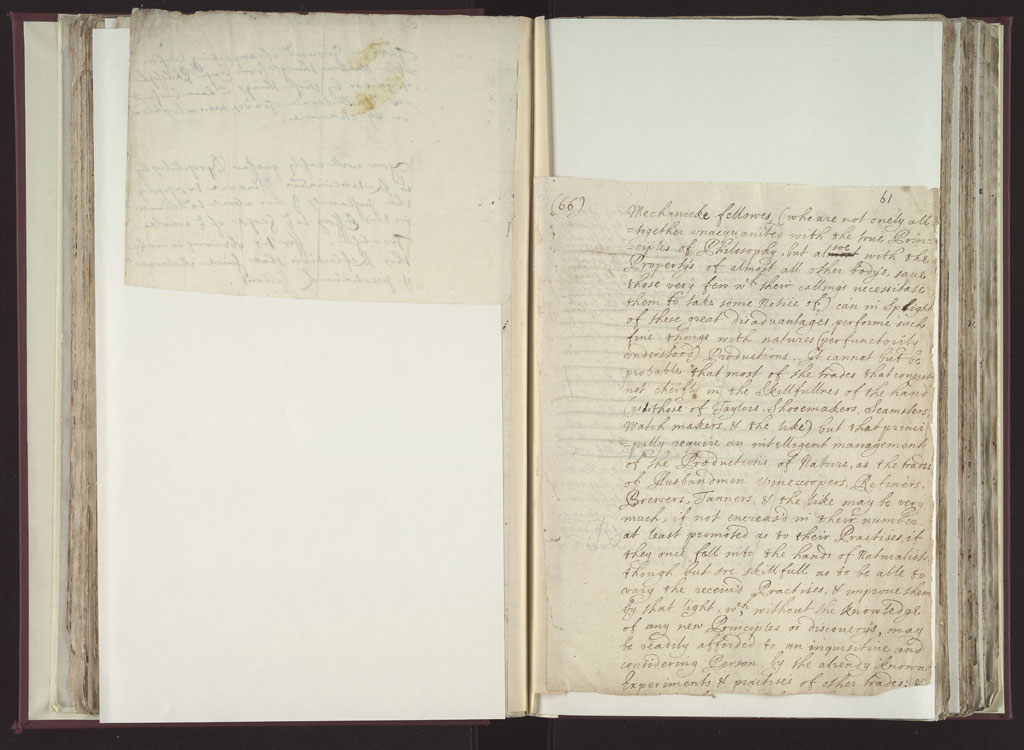 (66).
61
Mechanicke fellowes, (who are not onely all
=together unacquainted with the true Prin=
=ciples of Philosophy, but al soe with the
Propertys of almost all other bodys, save
those very few wch their callings necessitate
them to take some Notice of) can in Spight
of these great disadvantages, performe such
fine things with natures (perfunctorily
understood) Productions. It cannot but be
probable that most of the trades that consist
not cheifly in the Skillfullnes of the hand
(as those of Taylors, Shooemakers, Seamsters,
Watch makers, & the like) but that princi=
=pally require an intelligent management
of the Productions of Nature, as the trades
of Husbandmen Winecoopers, Refiners,
Brewers, Tanners, & the like may be very
much, if not encreas'd in their number
at least promoted as to their Practises, if
they once fall into the hands of Naturalists
though but soe skillfull as to be able to
vary the receiv'd Practises, & improve them
by that light, wch without the knowledge
of any new Principles or discoverys, may
be readily afforded to an inquisitive and
considering Person, by the already known
Experiments & practises of other trades: &